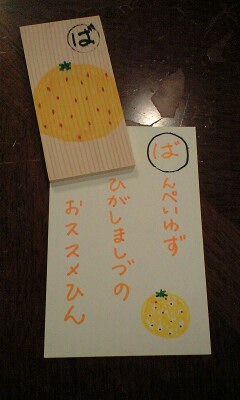 ば
ばんぺいゆず
ひがしましづの
おススメひん